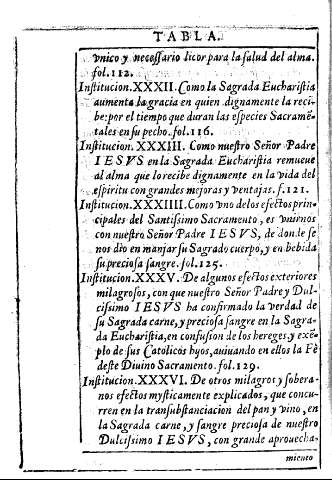 TABLA.
vnico y necessario licor para la salud del alma.
fol. 112.
Institucion. XXXII. Como la Sagrada Eucharistia
aumenta la gracia en quien dignamente la reci-
be: por el tiempo que duran las especies Sacramẽ-
tales en su pecho. fol. 116.
Institucion. XXXIII. Como nuestro Señor Padre
IESVS en la Sagrada Eucharistia remueue
al alma que lo recibe dignamente en la vida del
espiritu con grandes mejoras y ventajas. f. 121.
Institucion. XXXIIII. Como vno de los efectos prin-
cipales del Santissimo Sacramento, es vnirnos
con nuestro Señor Padre IESVS, de donde se
nos dio en manjar su Sagrado cuerpo, y en bebida
su preciosa sangre. fol. 125.
Institucion. XXXV. De algunos efectos exteriores
milagrosos, con que nuestro Señor Padre y Dul-
cissimo IESVS ha confirmado la verdad de
su Sagrada carne, y preciosa sangre en la Sagra-
da Eucharistia, en confusion de los hereges, y exẽ-
plo de sus Catolicos hijos, auiuando en ellos la Fè
deste Diuino Sacramento. fol. 129.
Institucion. XXXVI. De otros milagros y sobera-
nos efectos mysticamente explicados, que concu-
rren en la transubstanciacion del pan y vino, en
la Sagrada carne, y sangre preciosa de nuestro
Dulcissimo IESVS, con grande aprouecha-
miento